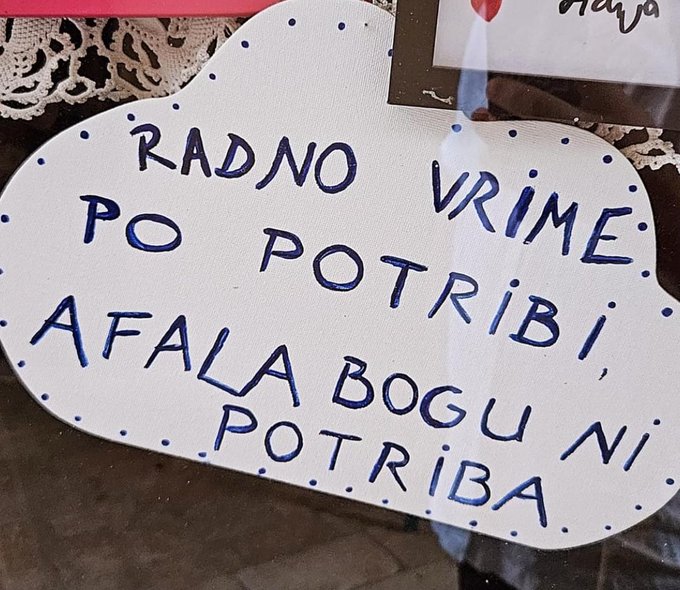 RADNO VRIME
PO POTRIBI,
AFALA BOGU NI
POTRIBA